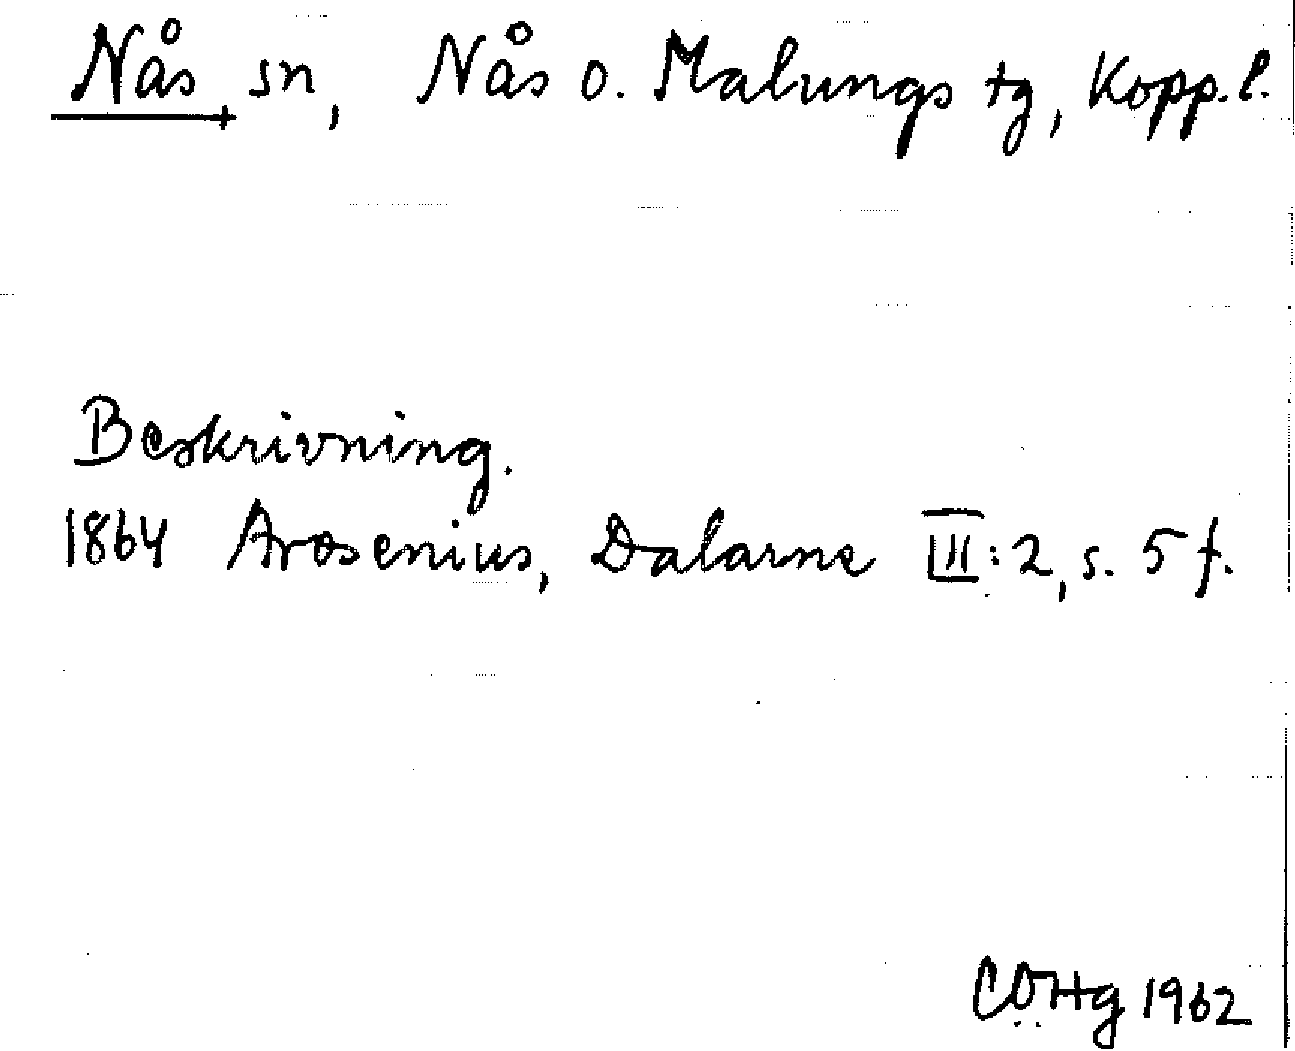 Nås sn, Nås o. Malungs tg, Kopp. l.
Beskrivning.
1864 Arosenius, Dalarne III:2, s. 5 f.
COHg 1962